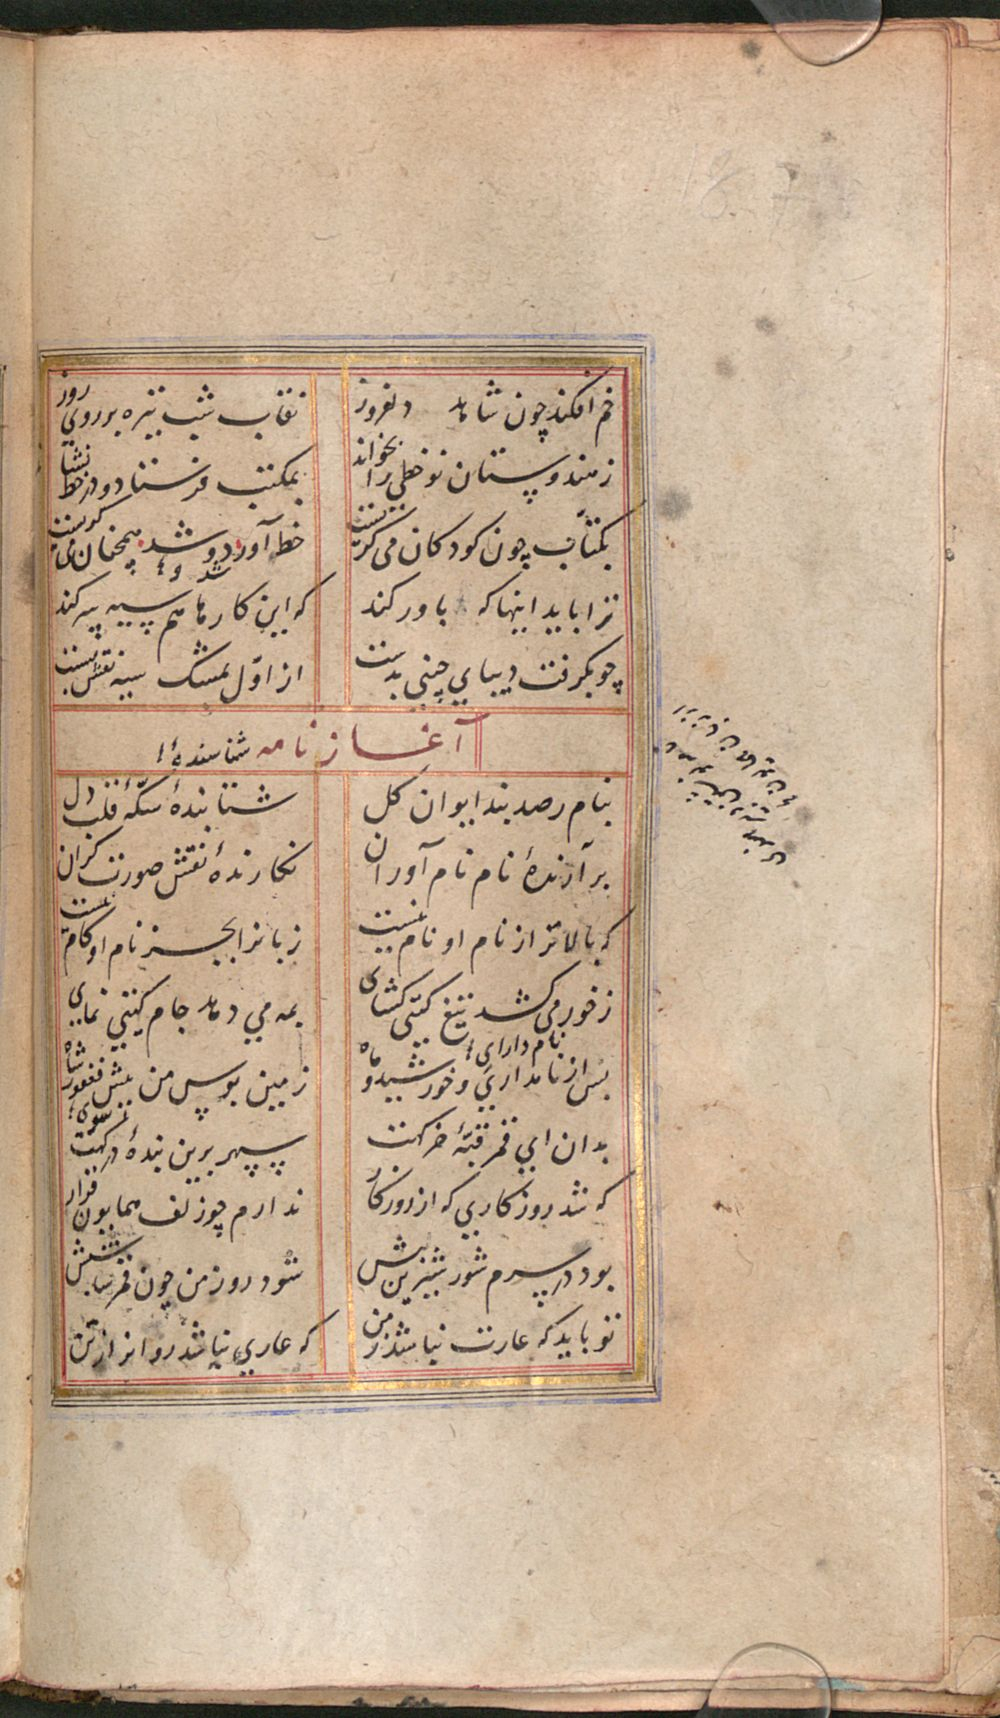 خم افکند چون شاهد دلفروز نقاب شب تیره بر روی روز
ز هندوستان نو خطی را بخواند بمکتب فرستاد و در خط نشاند
بکتّاب چون کودکان می گریست خط آورد و شد همچنان می گریست
ترا باید اینها که باور کند که این کارها هم سیه می کند
چو بگرفت دیبای چینی بدست از اول بمشک سیه نقش بست
آغاز نامه شناسنده
بنام رصد بند ایوان کل شتابندهٔ سکّهٔ قلب دل
بر آرندهٔ نام نام آوران نگارندهٔ نقش صورت گران
که بالاتر از نام او نام نیست زبانرا بجز نام او کام نیست
ز خور می کشد تیغ گیتی گشای بمه می دهد جام گیتی نمای
نام دارای
پس از نامداری و خورشید و ماه زمین بوس من پیش فغفور شاه
سوی
بدان ای قمر قبّهٔ خرگهت سپهر برین بندهٔ درگهت
که شد روزگاری که از روزگار ندارم چو زلف همایون قرار
بود در سرم شور شیرینش شود روز من چون قمر تابشش
تو باید که عارت نباشد ز من که عاری نباشد روانرا ز تن